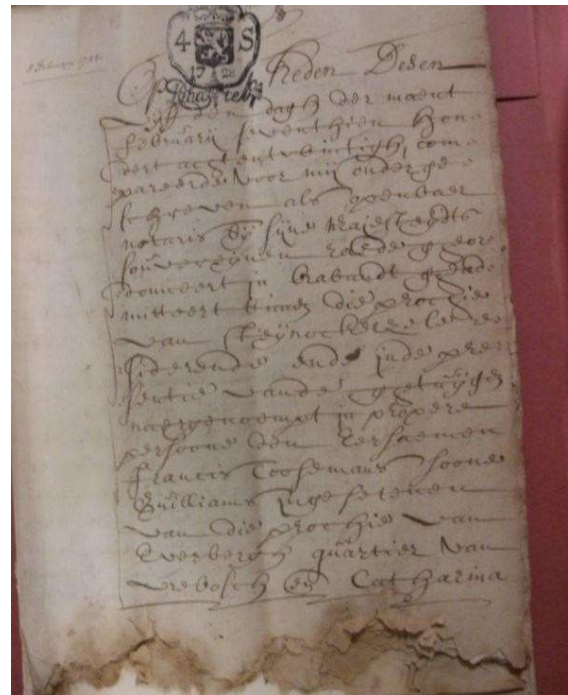 4 S
17 28
Op Heden Desen
vijffden dagh der maent
februarij seventhien hon
dert acht entwintigh, com
pareerde voor mij onderge
schreven als openbaer
notaris bij sijne Majesteyts
souvereynen raede geor
donneert in Brabandt gead
mitteert binnen die prochie
van Steynockerzeele re
siderende ende inde pre
sentie vande getuijgen
naergenoempt in propere
persoone den Eersaemen
Francis Coosemans soone
Guilliams ingesetenen
van die prochie van
Everbergh quartier van
vrebosch Catharina